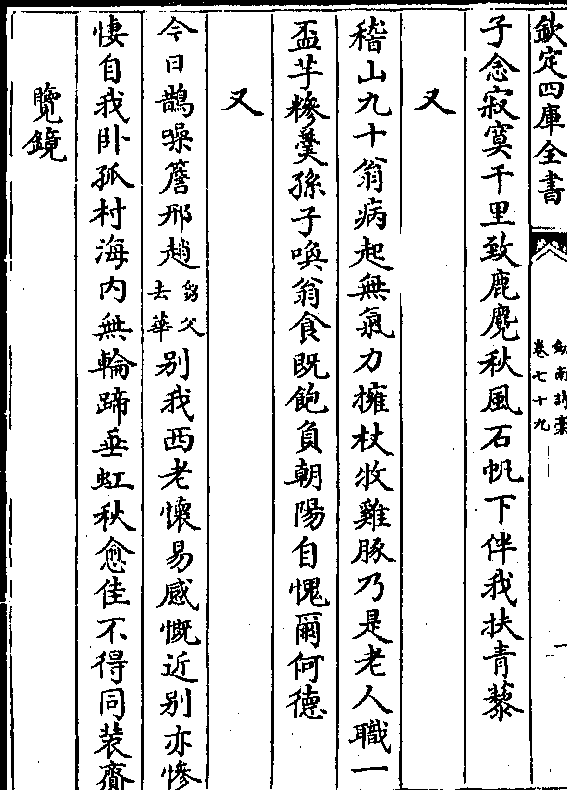 欽定四庫全書
劍南詩稾
卷七十九
子念寂寞千里致鹿麑秋風石帆下伴我扶青藜
又
稽山九十翁病起無氣力擁杖牧雞豚乃是老人職一
盃芋糝羮孫子喚翁食既飽負朝陽自愧爾何德
又
今日鵲噪簷邢趙
父
去華
别我西老懷易感慨近别亦慘
悽自我卧孤村海内無輪蹄垂虹秋愈佳不得同装齎
覽鏡